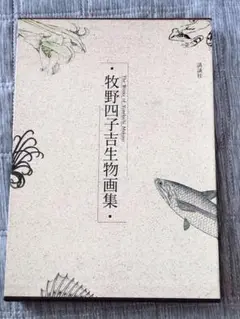 講談社
The Works of Yoneikichi Makino
・牧野四子吉生物画集・